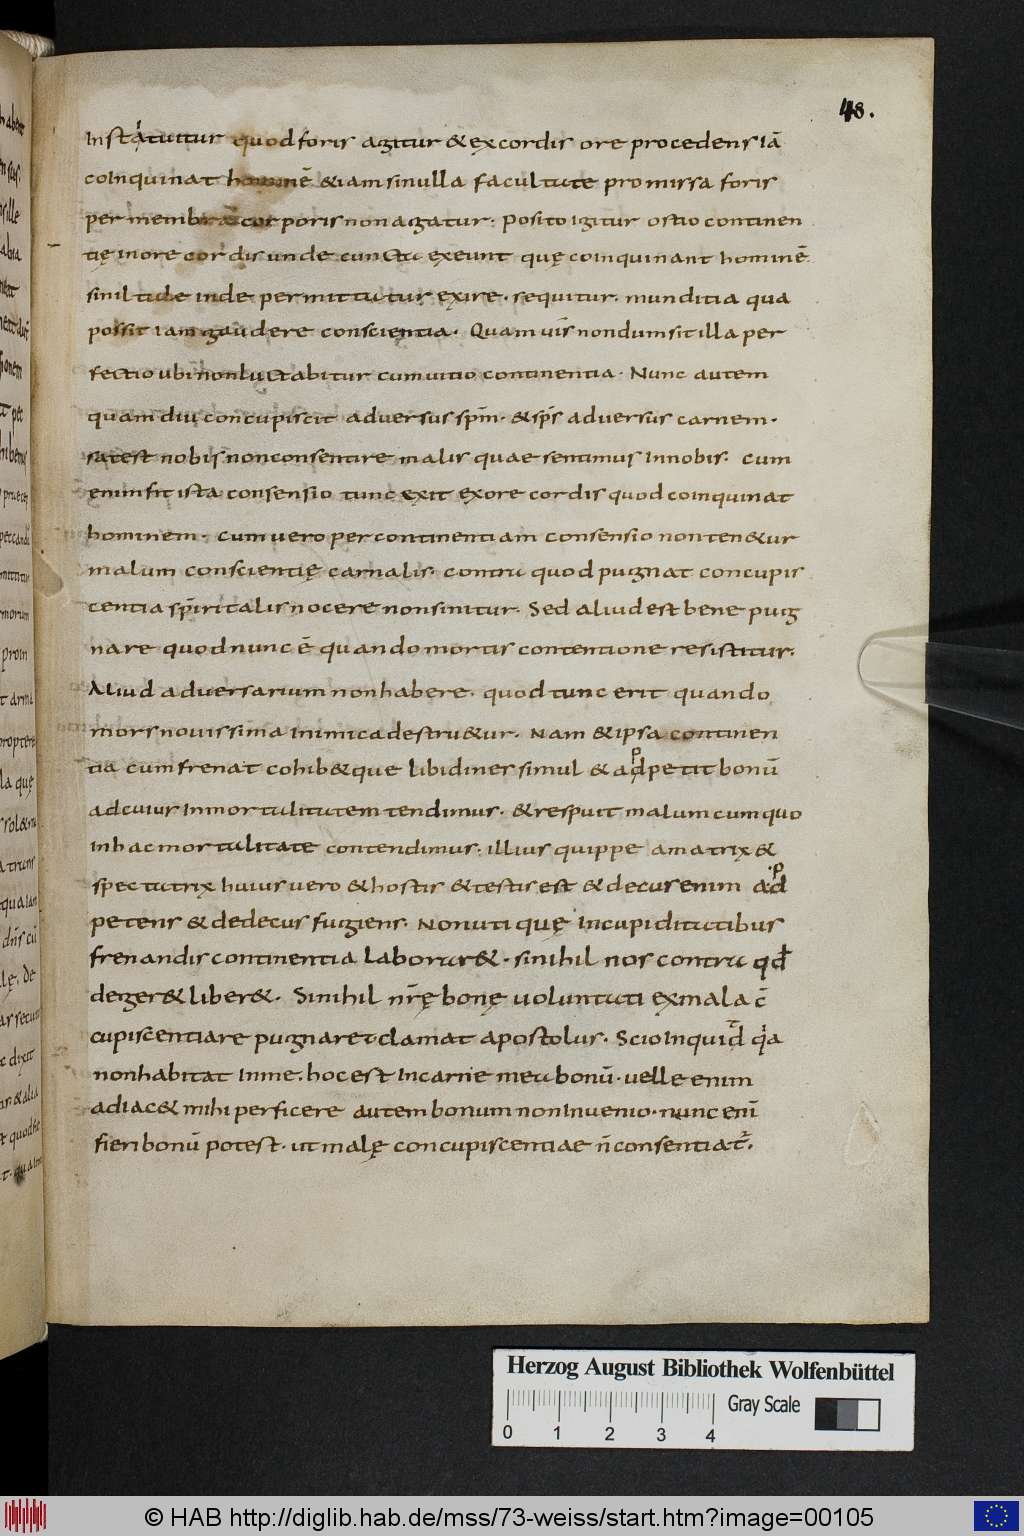 48.
Instatuitur quod foris agitur & ex cordis ore procedens iā
coinquinat hominē &iam si nulla facultate promissa foris
per membra corporis non agatur. Posito igitur ostio continen
tię in ore cordis unde cuncta exeunt quę coinquinant hominē
si nil tale inde permittatur exire. sequitur. munditia qua
possit iam gaudere conscientia. Quamuīs nondum sit illa per
fectio ubi non luctabitur cum uitio continentia. Nunc autem
quamdiu concupiscit aduersus sp̄m. & sp̄s aduersus carnem.
sat est nobis non consentire malis quae sentimus in nobis. Cum
enim fit ista consensio tunc exit ex ore cordis quod coinquinat
hominem. Cum uero per continentiam consensio non ten&ur
malum conscientię carnalis. contra quod pugnat concupis
centia sp̄iritalis nocere non sinitur. Sed aliud est bene pug
nare quod nunc ē quando mortis contentione resistitur.
Aliud aduersarium non habere. quod tunc erit quando
mors nouissima inimica destru&ur. Nam & ipsa continen
tia cum frenat cohib&que libidines simul & adpetit bonū
ad cuius inmortalitatem tendimus. & respuit malum cum quo
in hac mortalitate contendimus. illius quippe amatrix &
spectatrix huius uero & hostis & testis est & decus enim ad
petens & dedecus fugiens. Non utique in cupiditatibus
frenandis continentia laborar&. si nihil nos contra qđ
deger& liber&. Si nihil nr̄ę bonę uoluntati ex mala c̄
cupiscentia repugnaret clamat apostolus. Scio inquid qia
non habitat in me. hoc est in carne mea bonū. uelle enim
adiac& mihi perficere autem bonum non inuenio. nunc enī
fieri bonū potest. ut malę concupiscentiae n̄ consentiat̄.
Herzog August Bibliothek Wolfenbüttel
Gray Scale
0 1 2 3 4
© HAB http://diglib.hab.de/mss/73-weiss/start.htm?image=00105